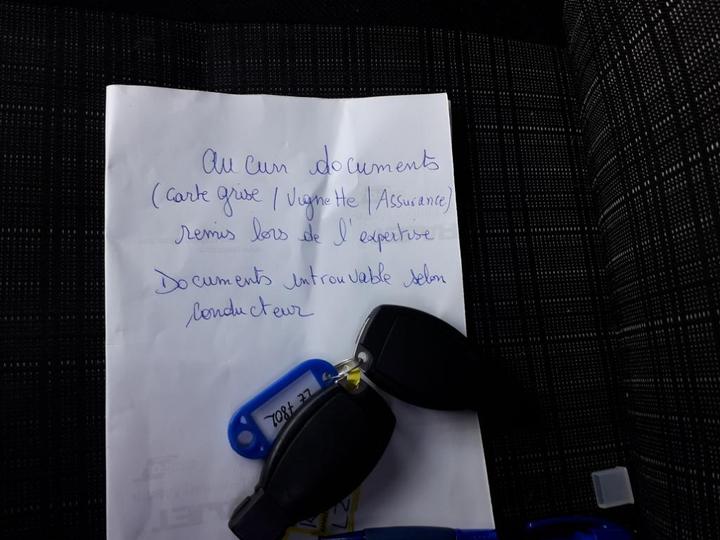 Aucun documents
(carte grise / Vignette / Assurance)
remis lors de l'expertise
Documents introuvable selon
conducteur
LZ 7802